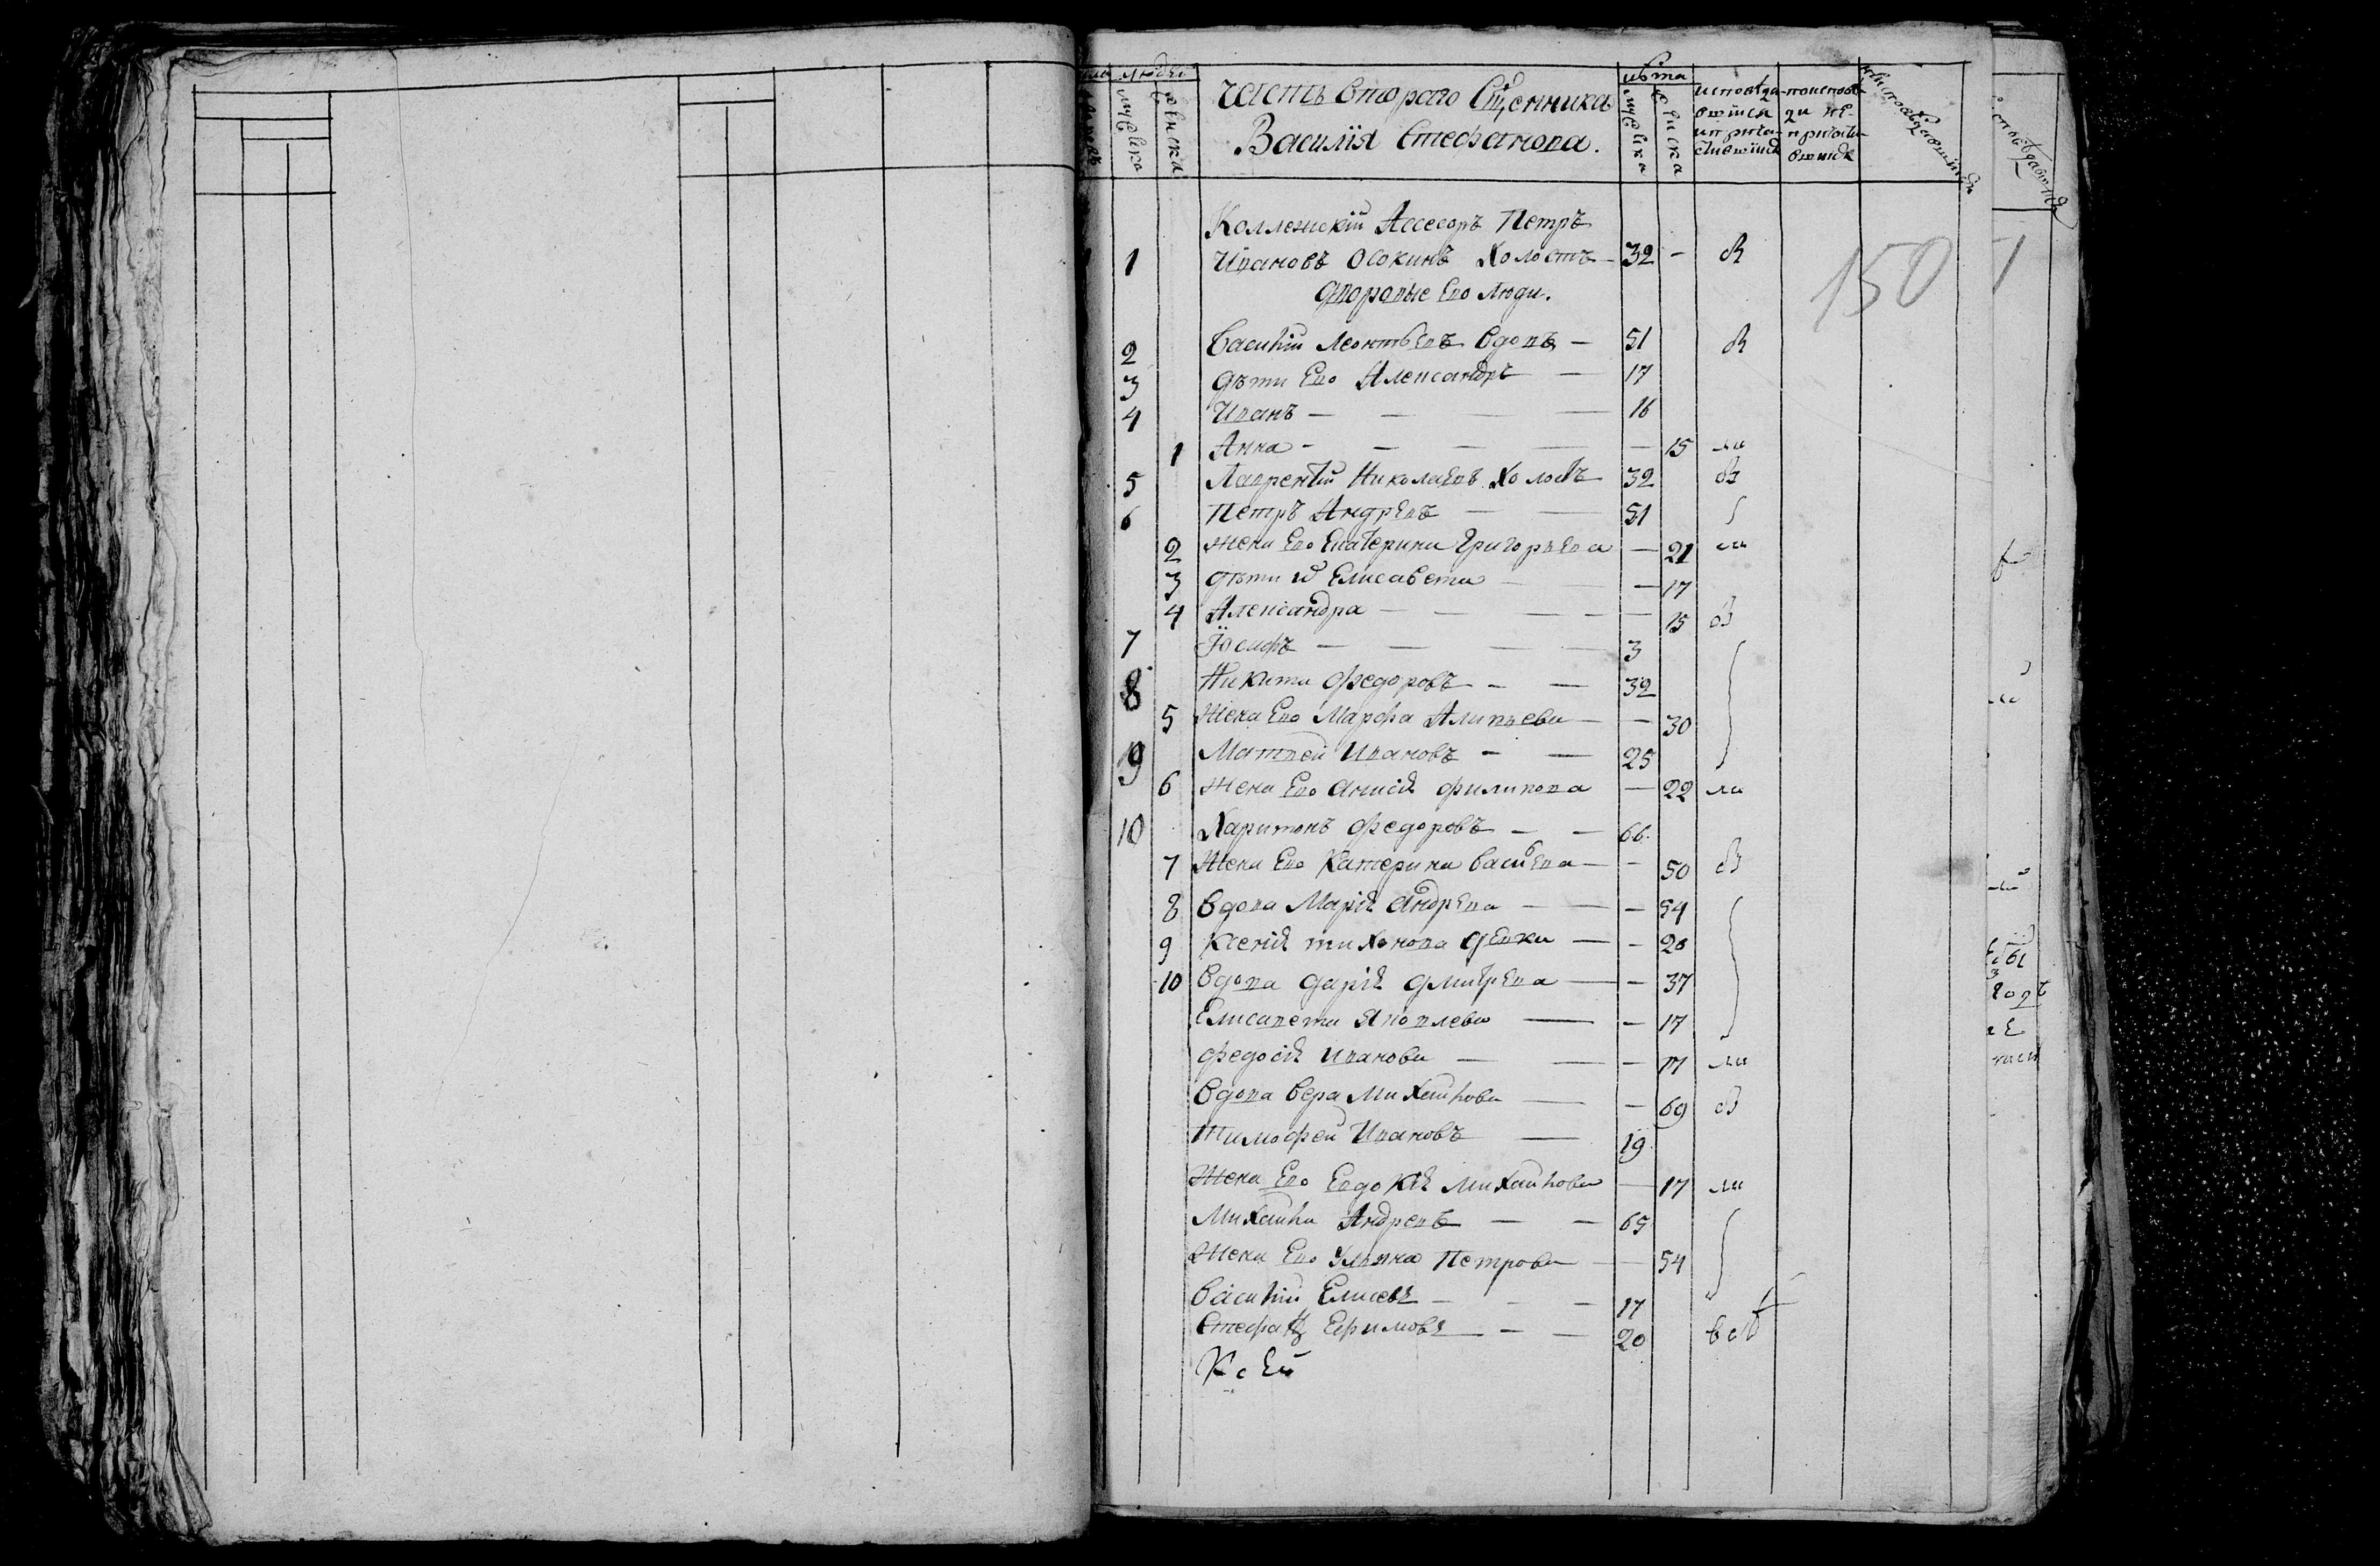 людей
мужеска
женска
Часть втораго Сщенника
Василія Стефанова.
лѣта
мужеска
женска
исповѣда-
вшіися
и прича-
стившіися
по исповѣ-
ди не-
причасти-
вшіися
Коллежскій Ассесоръ Петръ
1 Ивановъ Осокинъ холостъ - 32 - въ
дворовые Его люди.
2 Василій Леонтьевъ вдовъ — 51 въ
3 дѣти Его Александръ — 17
4 Иванъ — — — — 16
1 Анна - — — — — 15 ла
5 Лаврентій Николаевъ холостъ 32 въ
6 Петръ Андрѣевъ — — 51
2 жена Его Екатерина Григорьева — 21 ла
3 дѣти их Елисавета — — 17
4 Александра — — — — 15 въ
7 Іосифъ — — — — 3
8 Никита Федоровъ - — 32
5 Жена Его Марфа Алипьева — — 30
9 Матвей Ивановъ - — 25
6 Жена Его Анисія филипова — 22 ла
10 Харитонъ Федоровъ — — 66.
7 Жена Его Катерина Васильева — - 50 въ
8 Вдова Марія Андрѣева — — — 54
9 Ксенія тихонова девка — - 20
10 Вдова Дарія Дмитрѣева — - 37
Елисавета Яковлева — - 17
Федосія Иванова — — - 17 ла
Вдова Вера Михайлова — — 69 въ
Тимофей Ивановъ — 19
Жена Его Евдокія Михайлова — 17 ла
Михайла Андревъ — — 65
Жена Его Ульяна Петрова — — 54
Василій Елисевъ — — — 17
Стефанъ Ефимовъ — — — 20
150
1